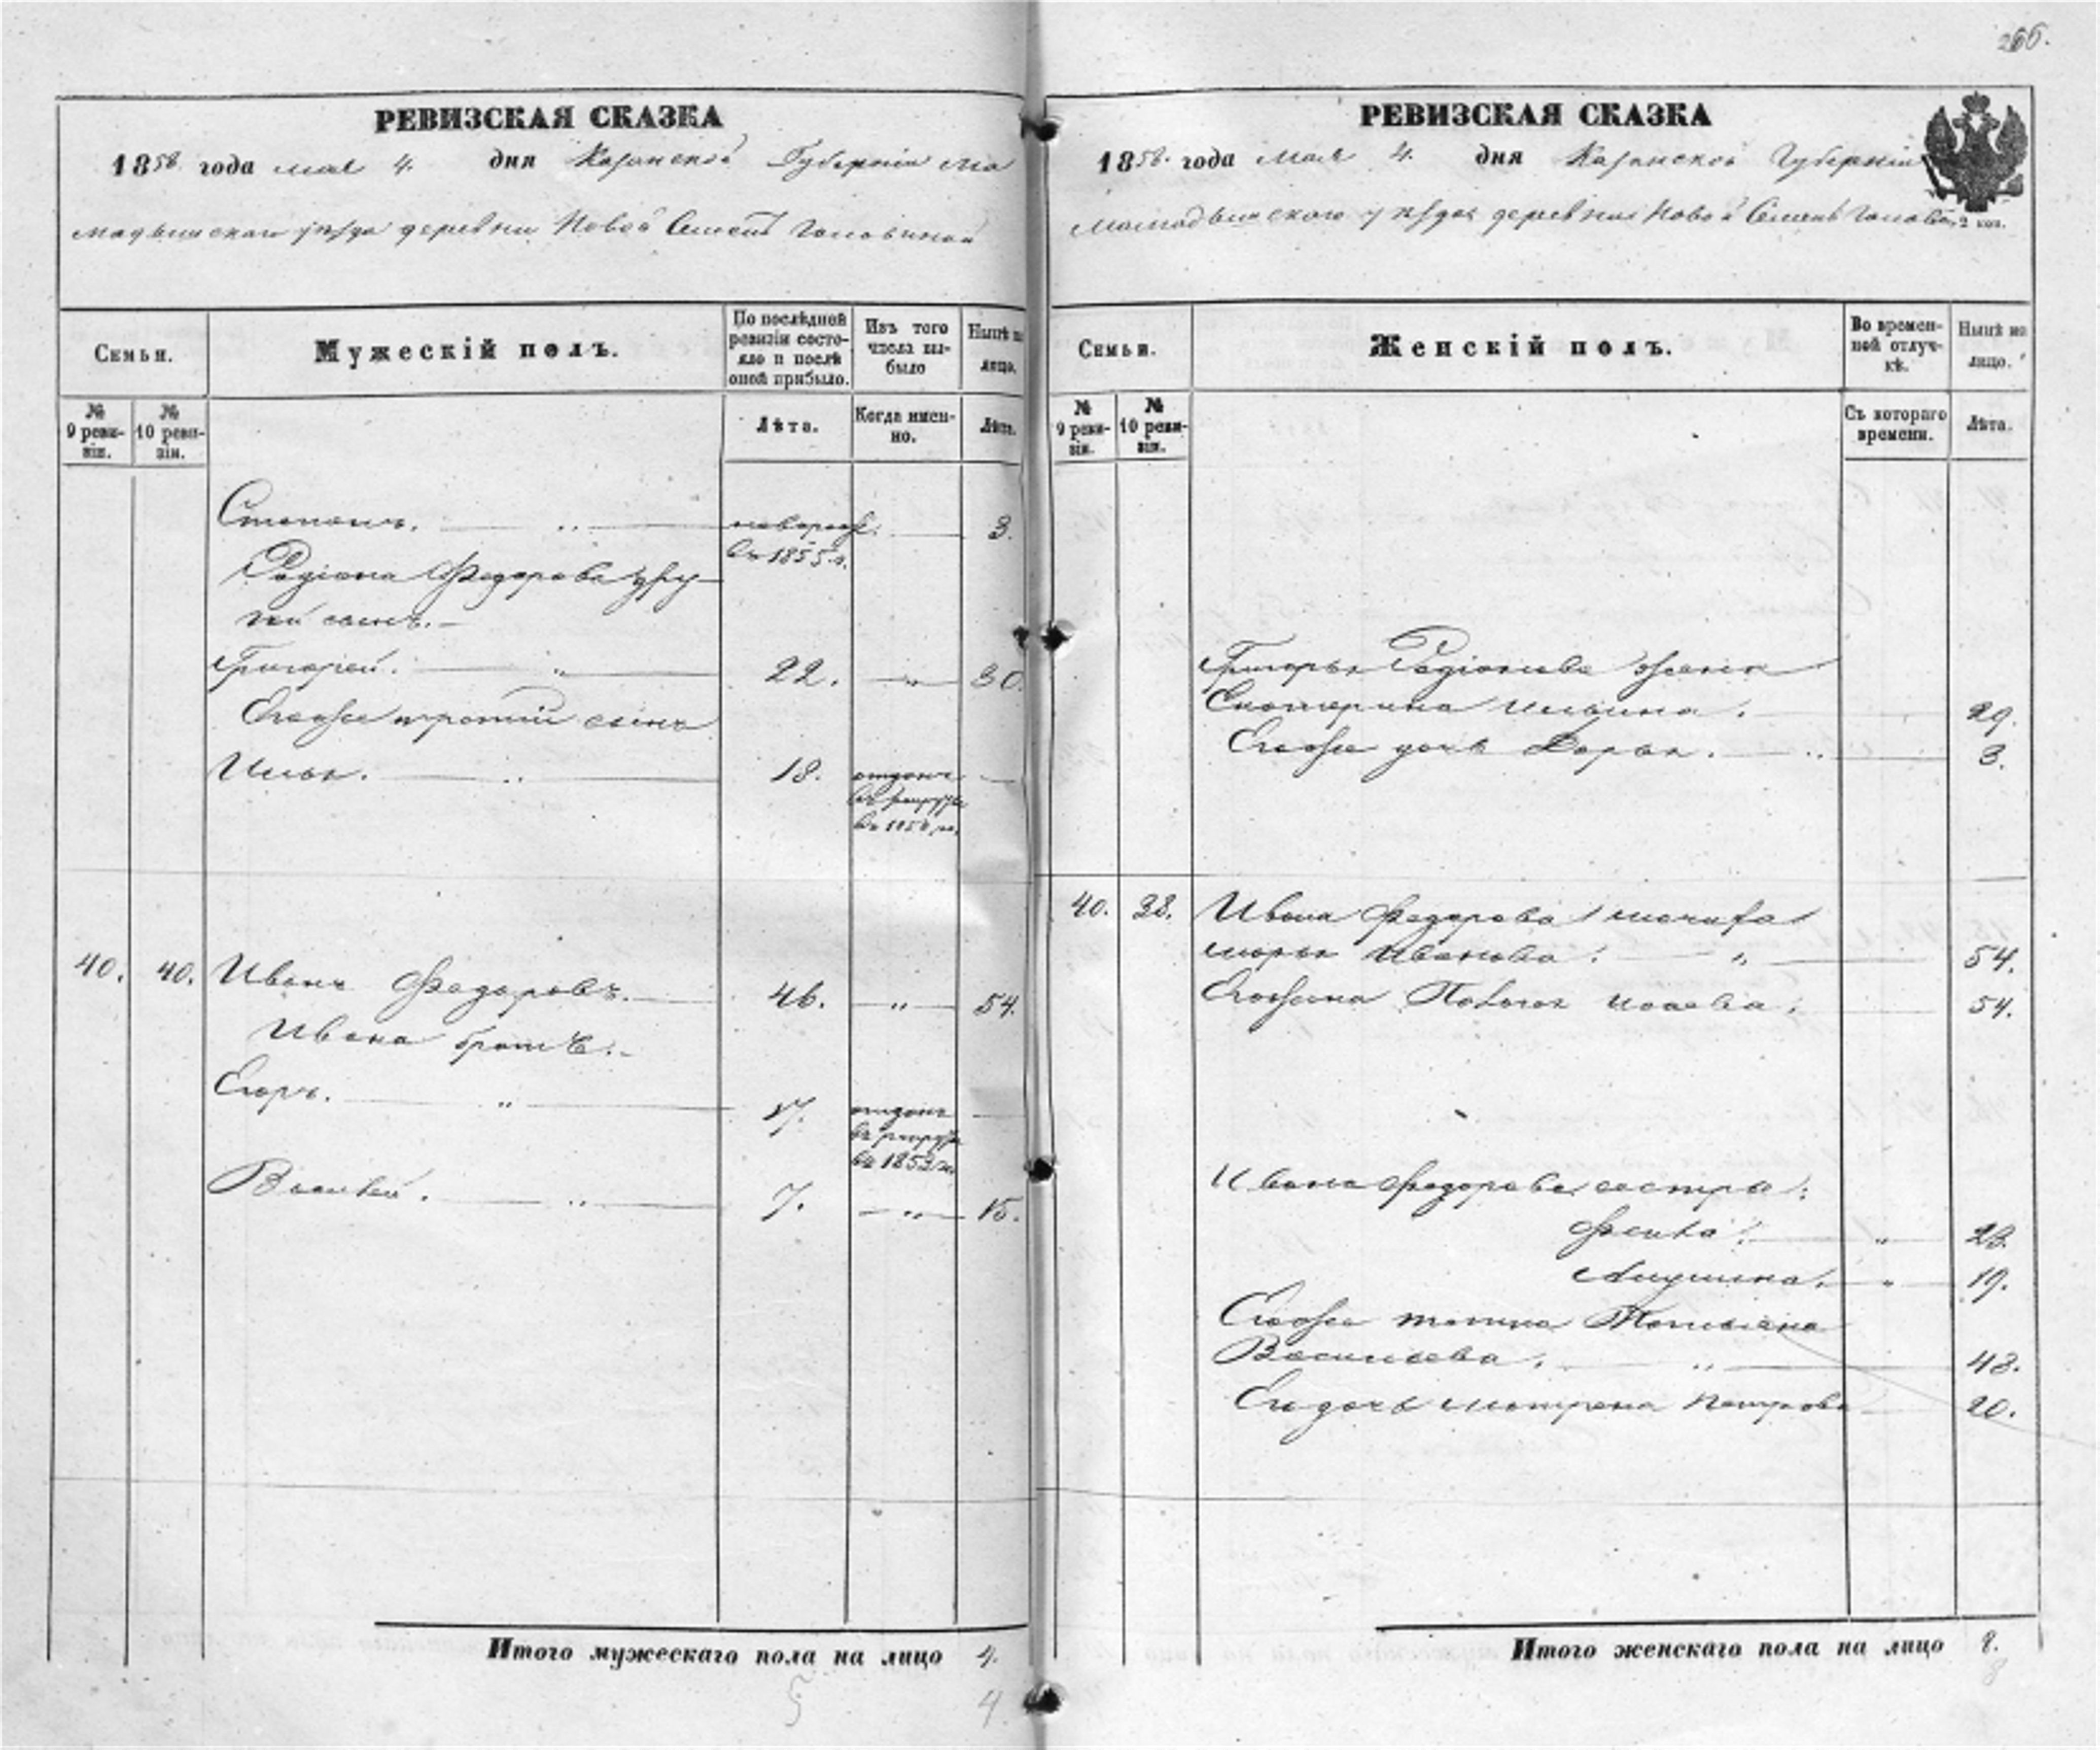 266.
РЕВИЗСКАЯ СКАЗКА
1858. года мая 4. дня Казанской Губерніи Ма
мадышскаго уѣзда деревни Новой
Семьи.
Мужескій полъ.
По послѣдней ревизіи состояло и послѣ оной прибыло.
Изъ того числа выбыло
Нынѣ на лицо.
№ 9 ревизіи.
№ 10 ревизіи.
Лѣта.
Когда именно.
Лѣта.
Степанъ. новорож. 3.
въ 1855 г.
Родіона Федорова дру-
гой сынъ.
Григорей. " 22. " 30.
Егоже третій сынъ
Илья. " 18. отданъ —
въ рекруты
40. 40. Иванъ Федоровъ. 46. " 54.
Ивана братья.
Егоръ. " 17. отданъ —
въ рекруты
въ 1853 г.
Василей. " 7. " 15.
Итого мужескаго пола на лицо 4.
5 4
РЕВИЗСКАЯ СКАЗКА
1858. года мая 4. дня Казанской Губерніи
Мамадышскаго уѣзда деревни Новой
2 коп.
Семьи.
Женскій полъ.
Во временной отлучкѣ.
Нынѣ на лицо.
№ 9 ревизіи.
№ 10 ревизіи.
Съ котораго времени.
Лѣта.
Григорья Родіонова жена
Екатерина Ильина. 29.
Егоже дочь Дарья. " 3.
40. 38. Ивана Федорова мачиха
Марья Иванова. " 54.
Егоже жена 54.
Ивана Федорова сестры:
Фекла. " 23.
" 19.
Егоже тетка Татьяна
Васильева. " 43.
Ея дочь Матрена Петрова 20.
Итого женскаго пола на лицо 8.
8